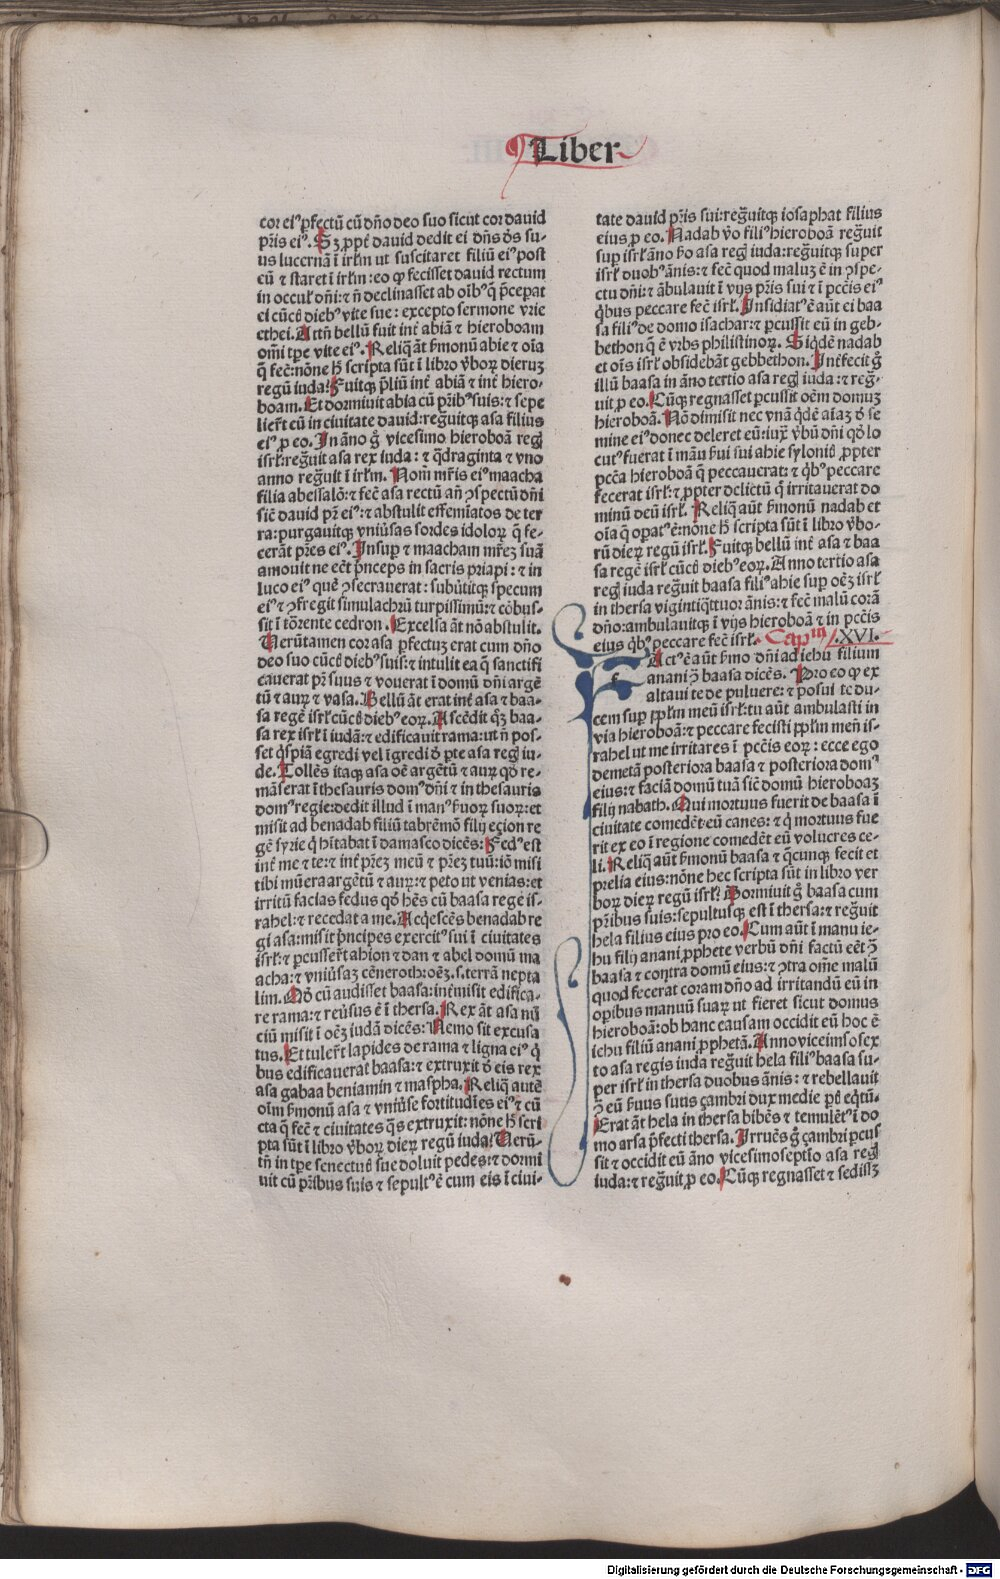 Liber
cor ei⁹ ꝑfectū cū dño deo suo sicut cor dauid
pr̃is ei⁹. Sꝫ ꝓpt̃ dauid dedit ei dñs de⁹ su-
us lucernã ĩ irl̃m ut suscitaret filiũ ei⁹ post
eũ ⁊ staret ĩ irl̃m: eo ꝙ fecisset dauid rectum
in occul̃ dñi: ⁊ ñ declinasset ab oĩb⁹ q̃ p̃cepat
ei cũcꝭ dieb⁹ vite sue: excepto sermone vrie
ethei. Attñ bellũ fuit int̃ abiã ⁊ hieroboam
om̃i tꝑe vite ei⁹. Reliq̃ ãt ẜmonũ abie ⁊ oĩa
q̃ fec̃: nõne h̃ scripta sũt ĩ libro v̾boꝝ dieruꝫ
regũ iuda? Fuitqꝫ p̃liũ int̃ abiã ⁊ int̃ hiero-
boam. Et dormiuit abia cũ pr̃ib⁹ suis: ⁊ sepe
lier̃t cũ in ciuitate dauid: regñuitqꝫ asa filius
ei⁹ ꝓ eo. In ãno g̊ vicesimo hieroboã regꝭ
isrl̃: regñuit asa rex iuda: ⁊ q̃draginta ⁊ vno
anno regñuit ĩ irl̃m. Nom̃ mr̃is ei⁹ maacha
filia abessalõ: ⁊ fec̃ asa rectũ añ ꝯspectũ dñi
sic̃ dauid pr̃ ei⁹: ⁊ abstulit effemĩatos de ter
ra: purgauitqꝫ vniũsas sordes idoloꝝ q̃ fe-
cerãt pr̃es ei⁹. Insuꝑ ⁊ maacham mr̃eꝫ suã
amouit ne eẽt p̃nceps in sacris priapi: ⁊ in
luco ei⁹ quẽ ꝯsecrauerat: sub̾titqꝫ specum
ei⁹ ⁊ ꝯfregit simulachrũ turpissimũ: ⁊ cõbus-
sit ĩ tõrente cedron. Excelsa ãt nõ abstulit.
Uerũtamen cor asa ꝑfectuꝫ erat cum dño
deo suo cũcꝭ dieb⁹ suis: ⁊ intulit ea q̃ sanctifi
cauerat pr̃ suus ⁊ vouerat ĩ domũ dñi argẽ
tũ ⁊ auꝝ ⁊ vasa. Bellũ ãt erat int̃ asa ⁊ baa-
sa regẽ isrl̃ cũcꝭ dieb⁹ eoꝝ. Ascẽdit q̊ꝫ baa-
sa rex isrl̃ ĩ iudã: ⁊ edificauit rama: ut ñ pos-
set q̃spiã egredi vel ĩgredi de ꝑte asa regꝭ iu-
de. Tollẽs itaqꝫ asa oẽ argẽtũ ⁊ auꝝ qd̾ re-
mãserat ĩ thesauris dom⁹ dñi ⁊ in thesauris
dom⁹ regie: dedit illud ĩ man⁹ ẜuoꝝ suoꝝ: et
misit ad benadab filiũ tabremõ filij eçion re
gẽ syrie q̃ hĩtabat ĩ damasco dicẽs: Fed⁹ est
int̃ me ⁊ te: ⁊ int̃ pr̃eꝫ meũ ⁊ pr̃eꝫ tuũ: iõ misi
tibi mũera argẽtũ ⁊ auꝝ: ⁊ peto ut venias: et
irritũ facias fedus qd̾ hẽs cũ baasa regẽ is-
rahel: ⁊ recedat a me. Acq̃escẽs benadab re
gi asa: misit p̃ncipes exercit⁹ sui ĩ ciuitates
isrl̃: ⁊ ꝑcusser̃t ahion ⁊ dan ⁊ abel domũ ma
acha: ⁊ vniũsaꝫ cẽneroth: oẽꝫ .s. terrã nepta
lim. Qd̾ cũ audisset baasa: int̃misit edifica-
re rama: ⁊ reũsus ẽ ĩ thersa. Rex ãt asa nũ
ciũ misit ĩ oẽꝫ iudã dicẽs: Nemo sit excusa
tus. Et tuler̃t lapides de rama ⁊ ligna ei⁹ q̃
bus edificauerat baasa: ⁊ extruxit de eis rex
asa gabaa beniamin ⁊ maspha. Reliq̃ autẽ
oĩm ẜmonũ asa ⁊ vniũse fortitudĩes ei⁹ ⁊ cũ
cta q̃ fec̃ ⁊ ciuitates q̃s extruxit: nõne h̃ scri
pta sũt ĩ libro v̾boꝝ dieꝝ regũ iuda? Uerũ-
tñ in tꝑe senectuꝭ sue doluit pedes: ⁊ dormi
uit cũ pr̃ibus suis ⁊ sepult⁹ ẽ cum eis ĩ ciui-
tate dauid pr̃is sui: regñuitqꝫ iosaphat filius
eius ꝓ eo. Nadab v̾o fili⁹ hieroboã regñuit
suꝑ isrl̃ ãno ẜo asa regꝭ iuda: regñuitqꝫ super
isrl̃ duob⁹ ãnis: ⁊ fec̃ quod maluꝫ ẽ in ꝯspe-
ctu dñi: ⁊ ãbulauit ĩ vijs pr̃is sui ⁊ ĩ pcc̃is ei⁹
q̃bus peccare fec̃ isrl̃. Insidiat⁹ ẽ aũt ei baa
sa fili⁹ de domo isachar: ⁊ ꝑcussit eũ in geb-
bethon q̃ ẽ vrbs philistinoꝝ. Siq̃dẽ nadab
et oĩs isrl̃ obsidebãt gebbethon. Int̃fecit g̊
illũ baasa in ãno tertio asa regꝭ iuda: ⁊ regñ-
uit ꝓ eo. Cũqꝫ regnasset ꝑcussit oẽm domuꝫ
hieroboã. Nõ dimisit nec vnã q̃dẽ aĩaꝫ de se
mine ei⁹ donec deleret eũ: iux̃ v̾bũ dñi qd̾ lo
cut⁹ fuerat ĩ mãu ẜui sui ahie syloniꝭ ꝓpter
pcc̃a hieroboã q̃ peccauerat: ⁊ q̃b⁹ peccare
fecerat isrl̃: ⁊ ꝓpter delictũ q̃ irritauerat do
minũ deũ isrl̃. Reliq̃ aũt ẜmonũ nadab et
oĩa q̃ oꝑat⁹ ẽ: nõne h̃ scripta sũt ĩ libro v̾bo-
rũ dieꝝ regũ isrl̃. Fuitqꝫ bellũ int̃ asa ⁊ baa
sa regẽ isrl̃ cũcꝭ dieb⁹ eoꝝ. Anno tertio asa
regꝭ iuda regñuit baasa fili⁹ ahie suꝑ oẽꝫ isrl̃
in thersa vigintiq̃ttuor ãnis: ⁊ fec̃ malũ corã
dño: ambulauitqꝫ ĩ vijs hieroboã ⁊ in pcc̃is
eius q̃b⁹ peccare fec̃ isrl̃. Capᵐ .XVI.
FAct⁹ ẽ aũt ẜmo dñi ad iehu filium
anani ꝯ̃ baasa dicẽs. Pro eo ꝙ ex
altaui te de puluere: ⁊ posui te du-
cem suꝑ ppl̃m meũ isrl̃: tu aũt ambulasti in
via hieroboã: ⁊ peccare fecisti ppl̃m meũ is-
rahel ut me irritares ĩ pcc̃is eoꝝ: ecce ego
demetã posteriora baasa ⁊ posteriora dom⁹
eius: ⁊ faciã domũ tuã sic̃ domũ hieroboaꝫ
filij nabath. Qui mortuus fuerit de baasa ĩ
ciuitate comedẽt eũ canes: ⁊ q̃ mortuus fue
rit ex eo ĩ regione comedẽt eũ volucres ce-
li. Reliq̃ aũt ẜmonũ baasa ⁊ q̃cunqꝫ fecit et
prelia eius: nõne hec scripta sũt in libro ver
boꝝ dieꝝ regũ isrl̃? Dormiuit g̊ baasa cum
pr̃ibus suis: sepultusqꝫ est ĩ thersa: ⁊ regñuit
hela filius eius pro eo. Cum aũt ĩ manu ie-
hu filij anani ꝓphete verbũ dñi factũ eẽt ꝯ̃
baasa ⁊ contra domũ eius: ⁊ ꝯtra om̃e malũ
quod fecerat coram dño ad irritandũ eũ in
oꝑibus manuũ suaꝝ ut fieret sicut domus
hieroboã: ob hanc causam occidit eũ hoc ẽ
iehu filiũ anani ꝓphetã. Anno viceimsosex
to asa regis iuda regñuit hela fili⁹ baasa su-
per isrl̃ in thersa duobus ãnis: ⁊ rebellauit
ꝯ̃ eũ ẜuus suus çambri dux medie ꝑtꝭ eq̃tũ.
Erat ãt hela in thersa bibẽs ⁊ temulẽt⁹ ĩ do
mo arsa p̃fecti thersa. Irruẽs g̊ çambri ꝑcus
sit ⁊ occidit eũ ãno vicesimoseptĩo asa regꝭ
iuda: ⁊ regñuit ꝓ eo. Cũqꝫ regnasset ⁊ sedissꝫ
Digitalisierung gefördert durch die Deutsche Forschungsgemeinschaft - DFG